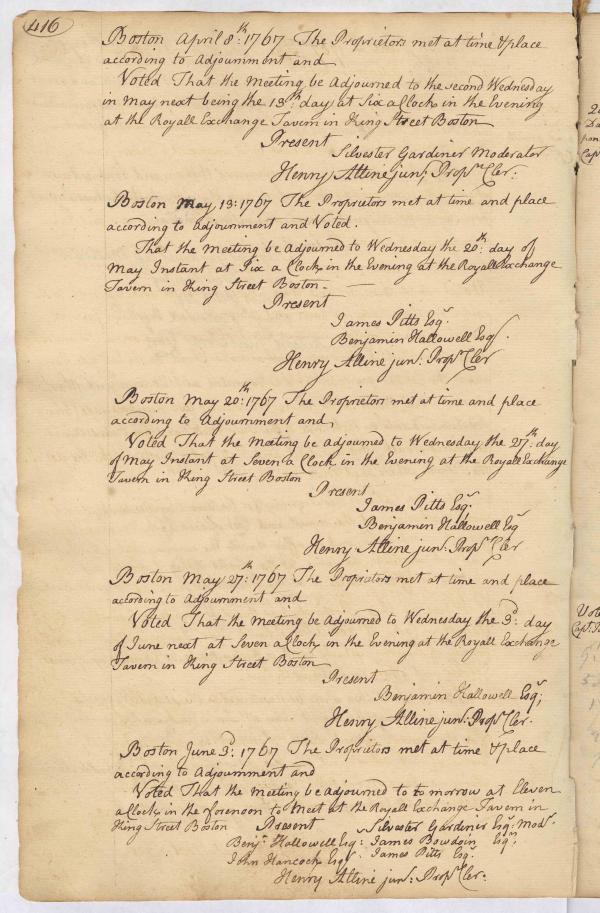 416
Boston April 8th. 1767 The Proprietors met at time & place
according to Adjournment and
Voted That the Meeting be Adjourned to the second Wednesday
in May next being the 13th. day at Six a Clock in the Evening
at the Royall Exchange Tavern in King Street Boston
Present
Silvester Gardiner Moderator
Henry Alline junr. Propsrs Cler:
Boston May 13: 1767 The Proprietors met at time and place
according to adjournment and Voted.
That the Meeting be adjourned to Wednesday the 20th. day of
May Instant at Six a Clock in the Evening at the Royall Exchange
Tavern in King Street Boston.
Present
James Pitts Esqr.
Benjamin Hallowell Esqr.
Henry Alline junr. Props Cler
Boston May 20th: 1767 The Proprietors met at time and place
according to Adjournment and,
Voted That the Meeting be adjourned to Wednesday the 27th. day
of May Instant at Seven a Clock in the Evening at the Royall Exchange
Tavern in King Street Boston
Present
James Pitts Esqr.
Benjamin Hallowell Esqr
Henry Alline junr. Props Cler
Boston May 27th: 1767 The Proprietors met at time and place
according to Adjournment and
Voted That the Meeting be Adjourned to Wednesday the 3d. day
of June next at Seven a Clock in the Evening at the Royall Exchange
Tavern in King Street Boston
Present
Benjamin Hallowell Esqr;
Henry Alline junr: Props Cler.
Boston June 3d: 1767 The Proprietors met at time & place
according to Adjournment and
Voted That the Meeting be adjourned to to morrow at Eleven
a Clock in the forenoon to Meet at the Royall Exchange Tavern in
King Street Boston Present Silvester Gardiner Esqr: Modr.
Benjn. Hallowell Esq: James Bowdoin Esqr.
John Hancock Esqr. James Pitts Esqr.
Henry Alline junr: Props Cler.